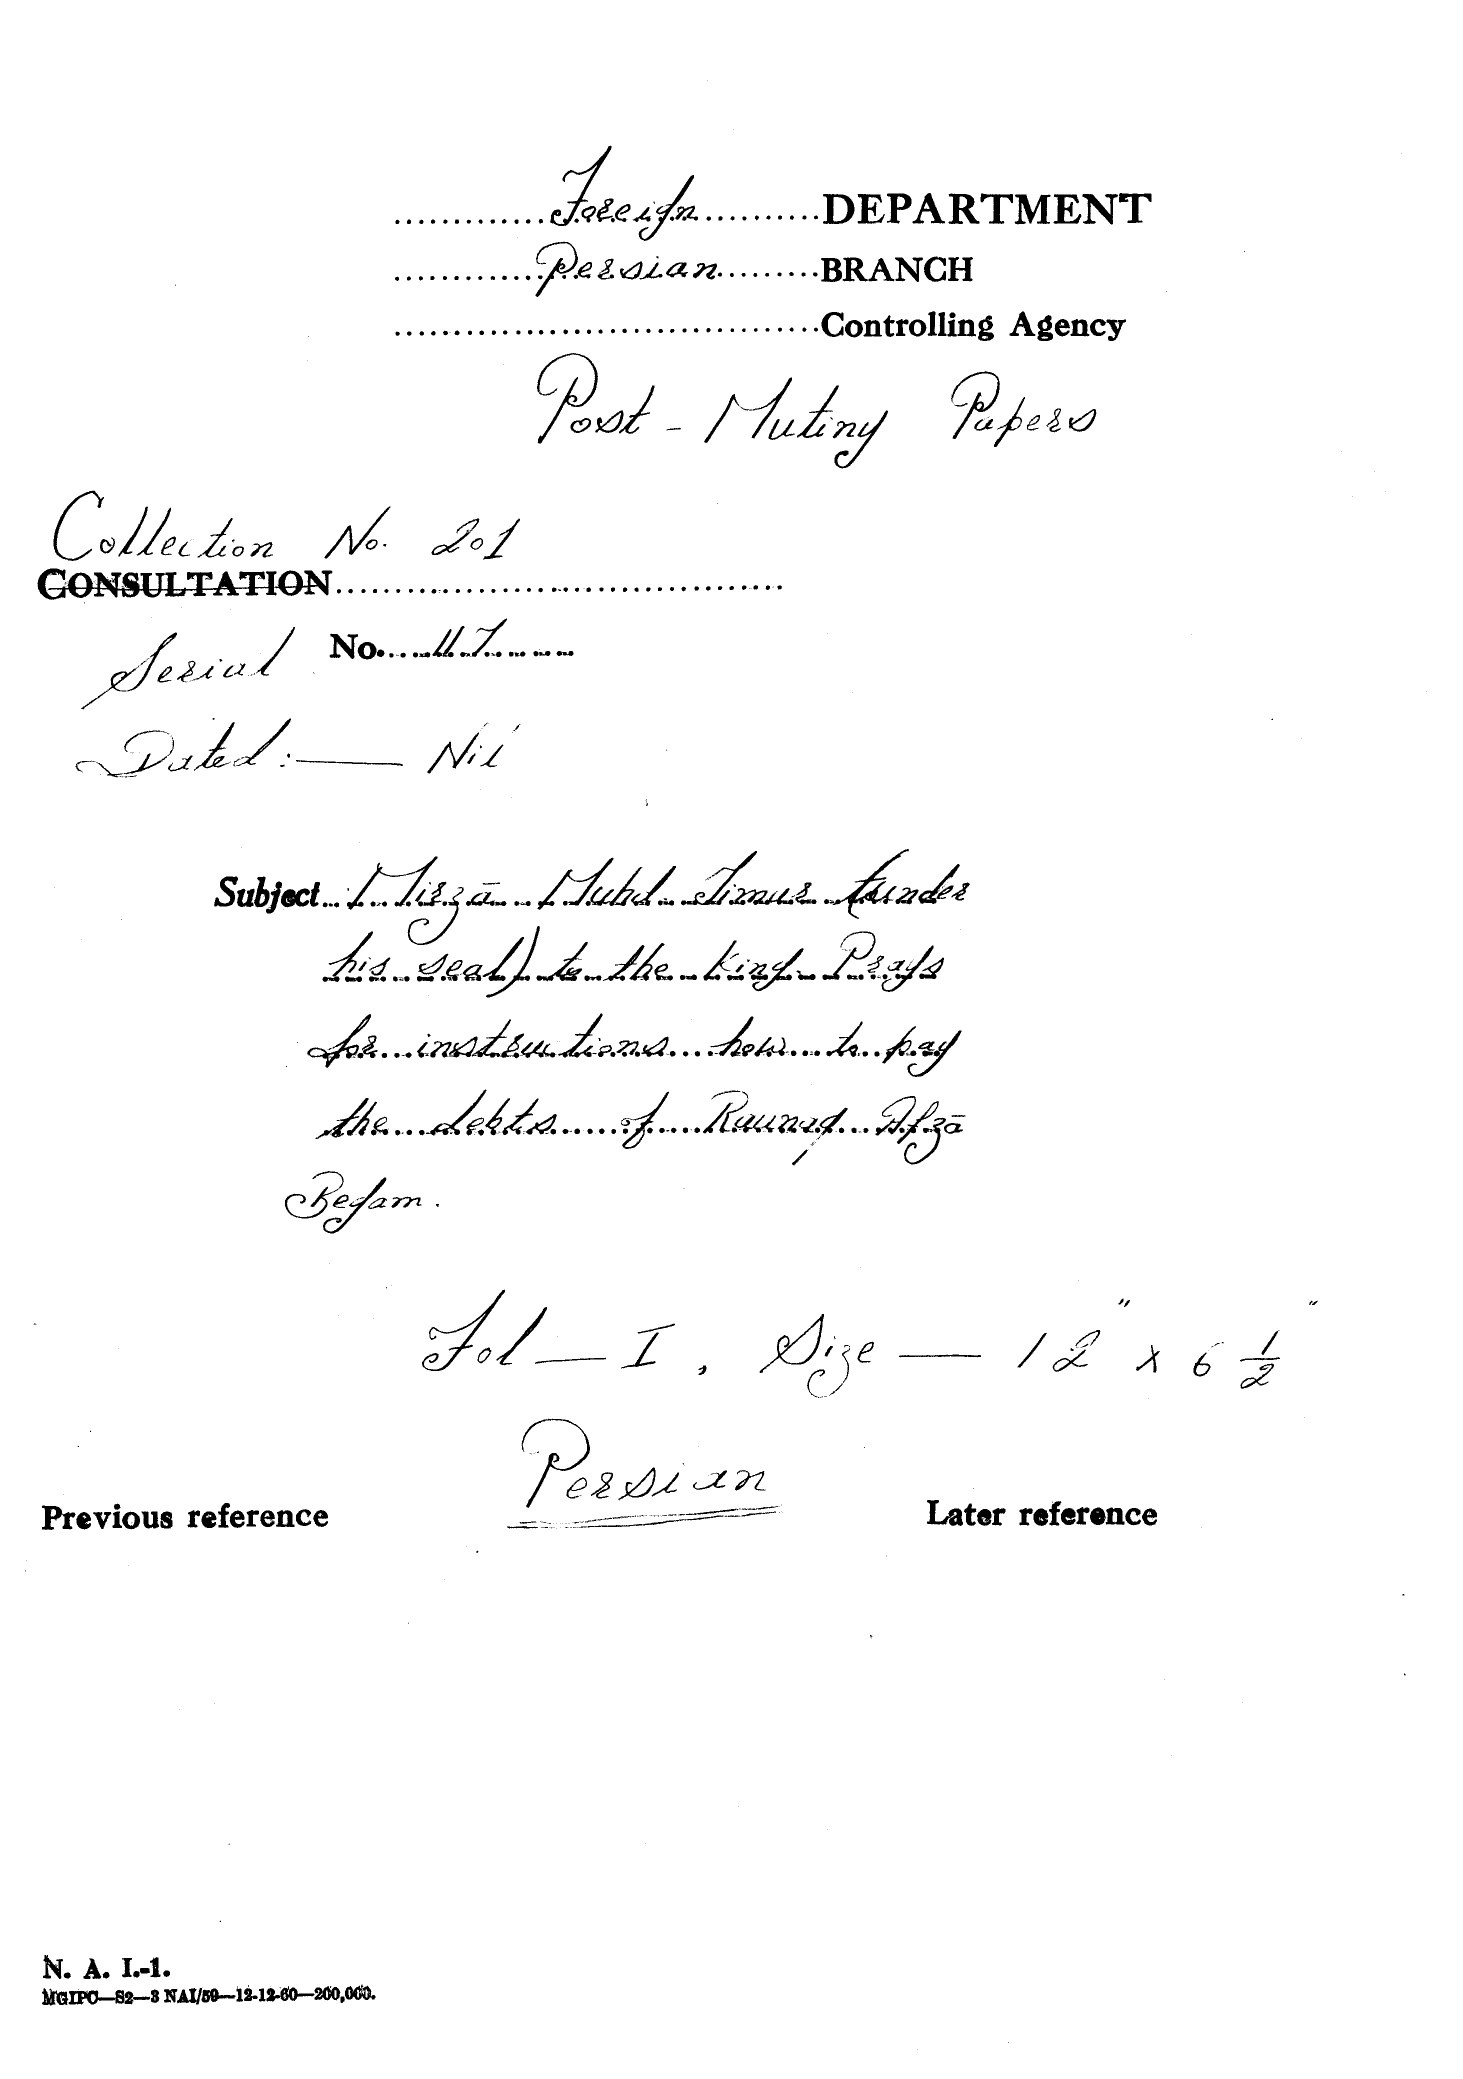 Foreign DEPARTMENT
Persian BRANCH
Controlling Agency
Post - Mutiny Papers
Collection No. 201
CONSULTATION
Serial No. 47
Dated :— Nil
Subject Mirzā Muhd Timur (under
his seal) to the King Prays
for instructions how to pay
the debts of Raunaq Afzā
Begam.
Fol — I, Size — 12" x 6 1/2"
Persian
Previous reference Later reference
N. A. I.-1.
MGIPC—S2—3 NAI/59—12-12-60—200,000.